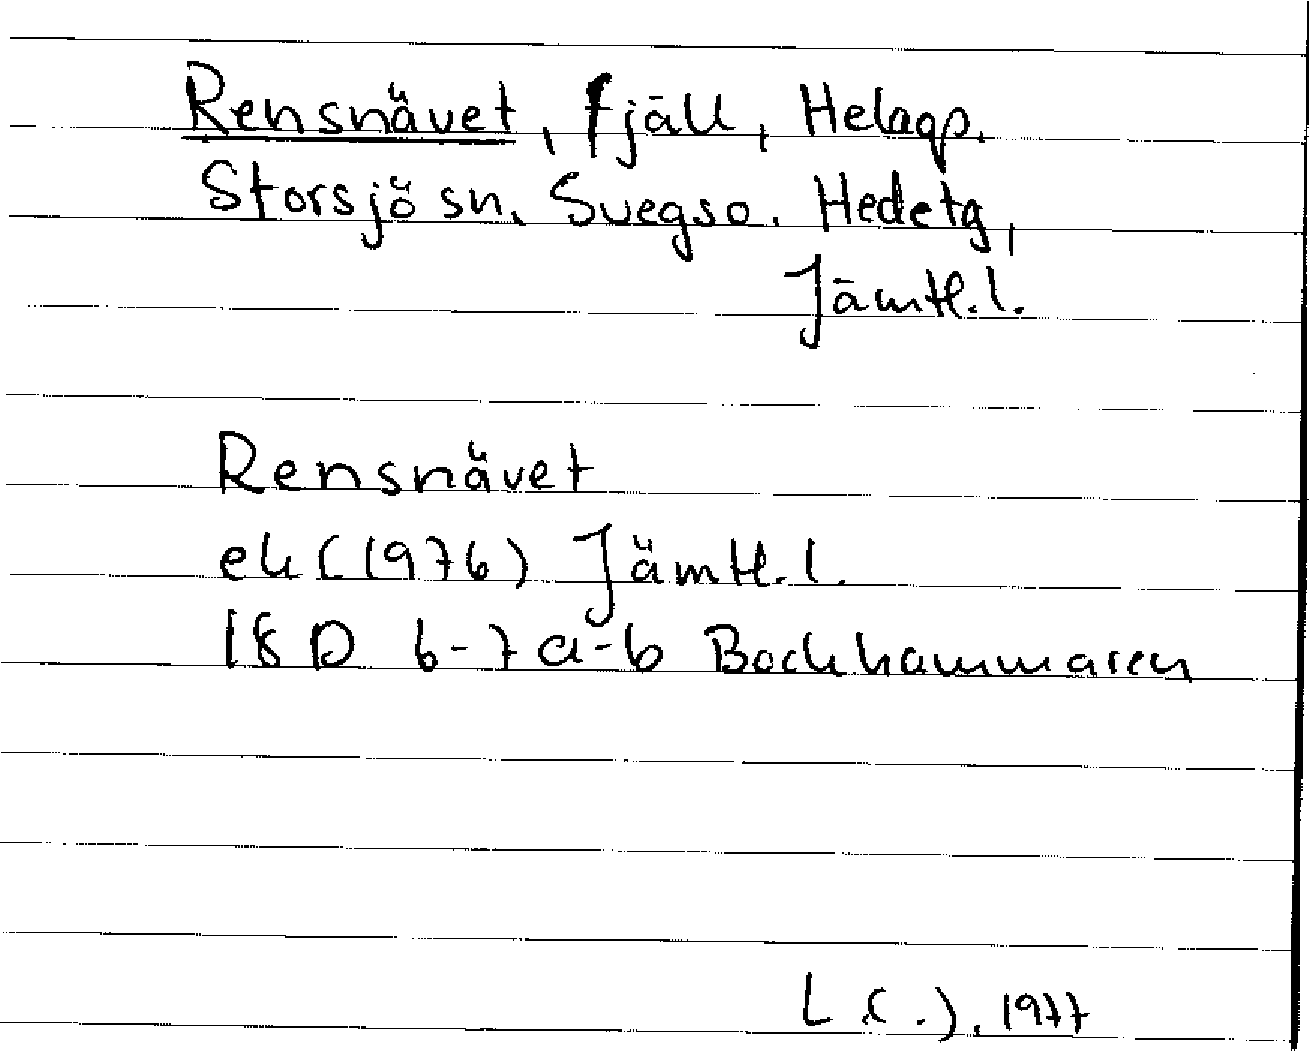 Rensnävet, fjäll, Helagp.
Storsjö sn, Svegso. Hedetg,
Jämtl.l.
Rensnävet
ek (1976) Jämtl.l.
18 D 6-7 a-b Bockhammaren
L (.), 1977